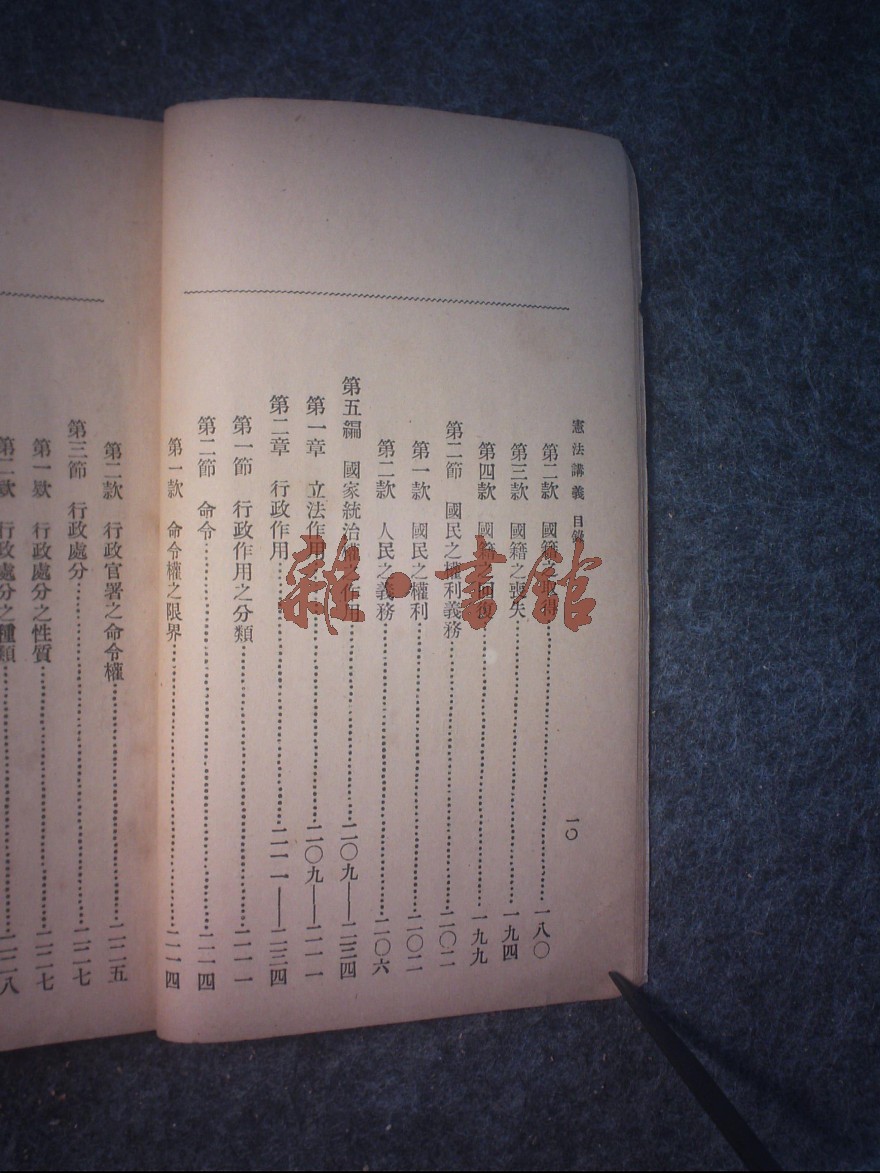 憲法講義 目錄 一〇
第二款 國籍之取得……一八〇
第三款 國籍之喪失……一九四
第四款 國籍之回復……一九九
第二節 國民之權利義務……二〇二
第一款 國民之權利……二〇二
第二款 人民之義務……二〇六
第五編 國家統治權之作用……二〇九——二三四
第一章 立法作用……二〇九——二一一
第二章 行政作用……二一一——二三四
第一節 行政作用之分類……二一一
第二節 命令……二一四
第一款 命令權之限界……二一四
第二款 行政官署之命令權……二二五
第三節 行政處分……二二七
第一款 行政處分之性質……二二七
第二款 行政處分之種類……二二八
雜·書館